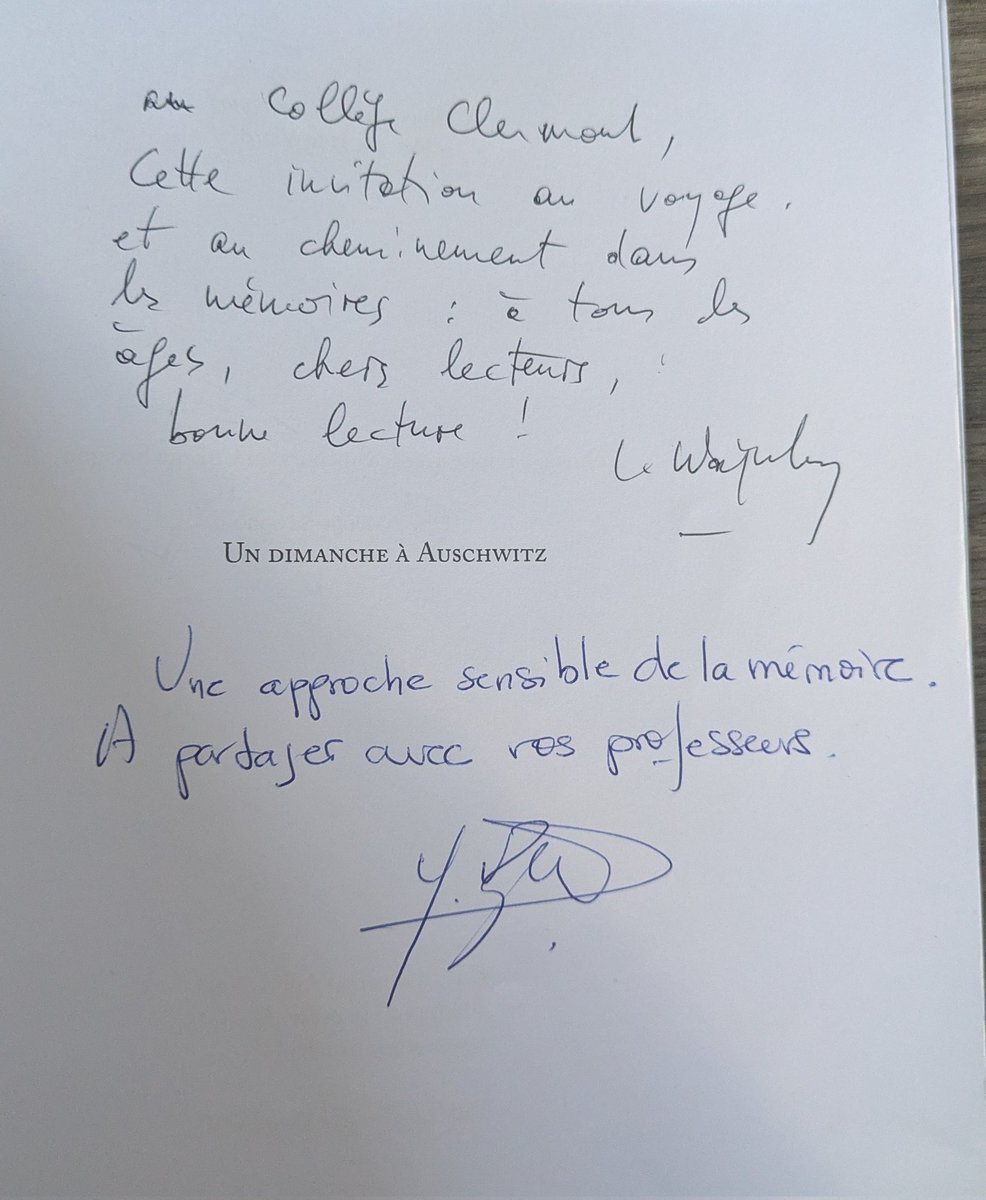 au Collège Clermont,
Cette invitation au voyage.
et au cheminement dans
les mémoires : à tous les
âges, chers lecteurs,
bonne lecture !
UN DIMANCHE À AUSCHWITZ
Une approche sensible de la mémoire.
A partager avec vos professeurs.